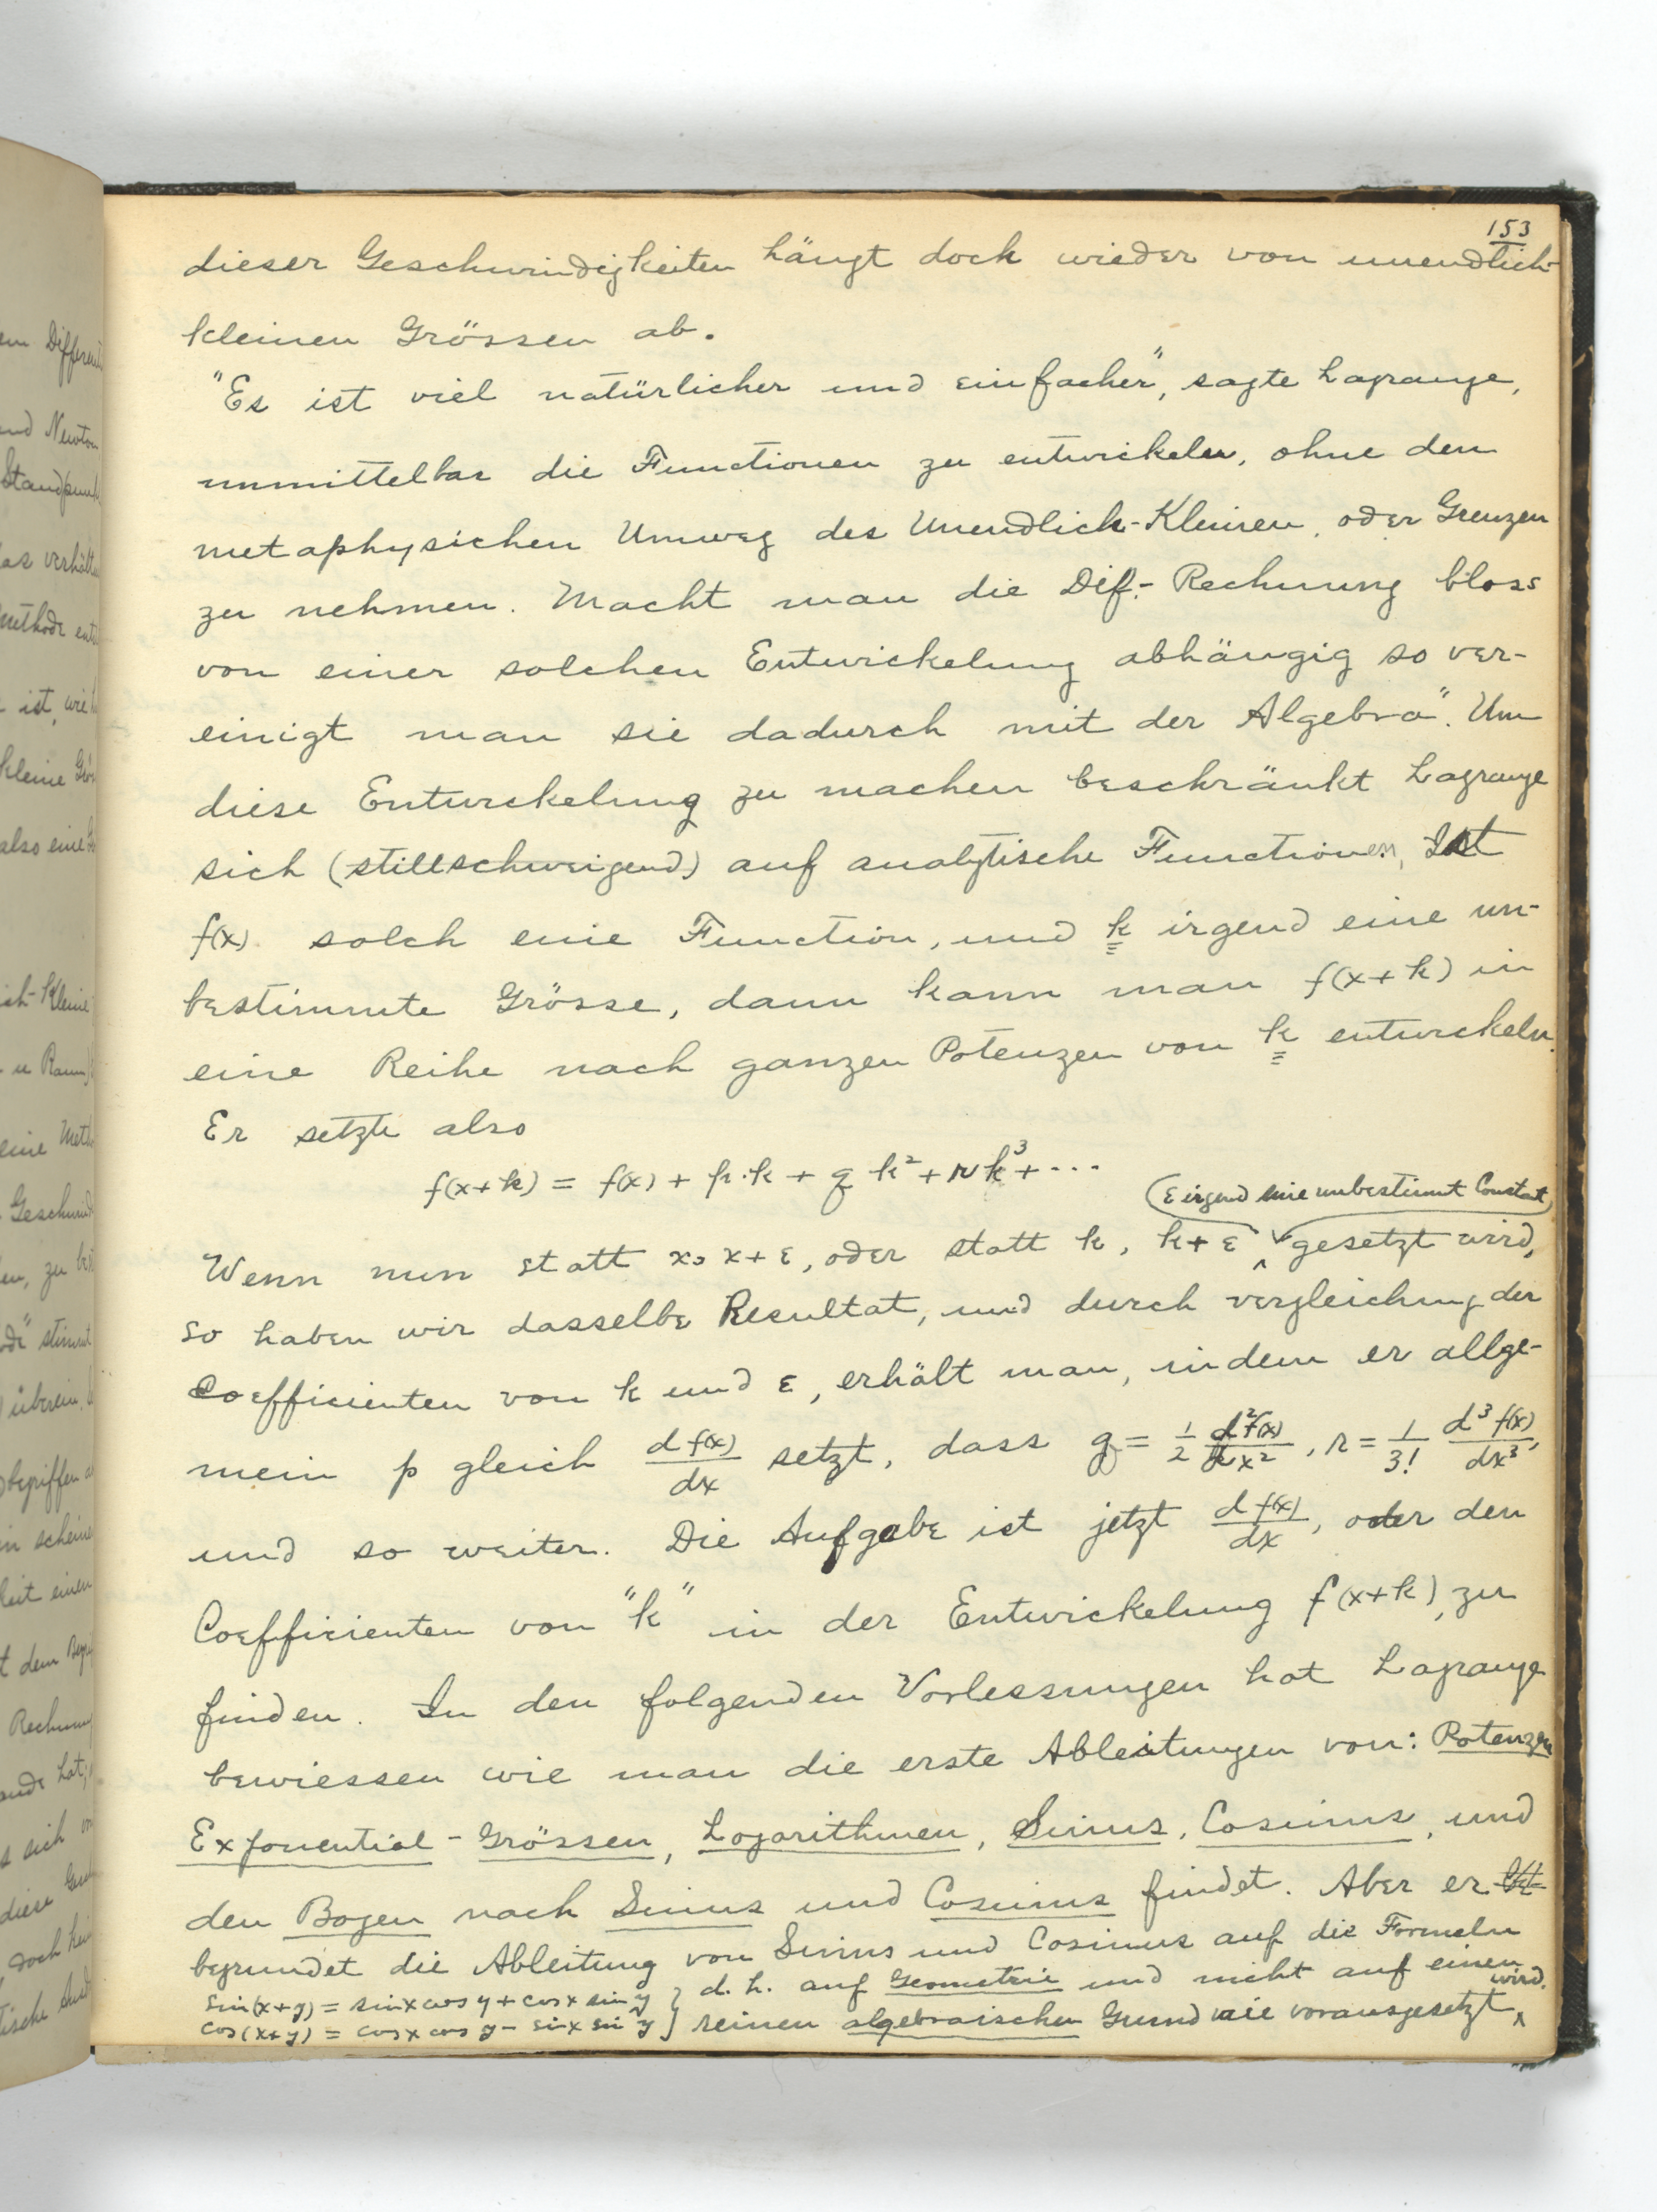 153
dieser Geschwindigkeiten hängt doch wieder von unendlich-
kleinen Grössen ab.
"Es ist viel natürlicher und einfacher", sagte Lagrange,
unmittelbar die Functionen zu entwickeln, ohne den
metaphysichen Umweg des Unendlich-Kleinen, oder Grenzen
zu nehmen. Macht man die Dif.- Rechnung bloss
von einer solchen Entwickelung abhängig so ver-
einigt man sie dadurch mit der Algebra". Um
diese Entwickelung zu machen beschränkt Lagrange
sich (stillschweigend) auf analytische Functionen, Ist
f(x) solch eine Function, und k irgend eine un-
bestimmte Grösse, dann kann man f(x+k) in
eine Reihe nach ganzen Potenzen von k entwickeln.
Er setzte also
f(x+k) = f(x) + p·k + q k² + r k³ + ···
(ε irgend eine unbestimmt Constat)
Wenn nun statt x, x+ε, oder statt k, k+ε gesetzt wird,
so haben wir dasselbe Resultat, und durch vergleichung der
Coefficienten von k und ε, erhält man, indem er allge-
mein p gleich d f(x)/dx setzt, dass q = 1/2 d²f(x)/dx², r = 1/3! d³f(x)/dx³,
und so weiter. Die Aufgabe ist jetzt d f(x)/dx, oder den
Coefficienten von "k" in der Entwickelung f(x+k), zu
finden. In den folgenden Vorlessungen hat Lagrange
bewiessen wie man die erste Ableitungen von: Potenzen
Exponential - Grössen, Logarithmen, Sinus, Cosinus, und
den Bogen nach Sinus und Cosinus findet. Aber er
begrundet die Ableitung von Sinus und Cosinus auf die Formeln
sin(x+y) = sin x cos y + cos x sin y } d. h. auf Geometrie und nicht auf einen
cos(x+y) = cos x cos y - sin x sin y } reinen algebraischen Grund wie vorausgesetzt wird.